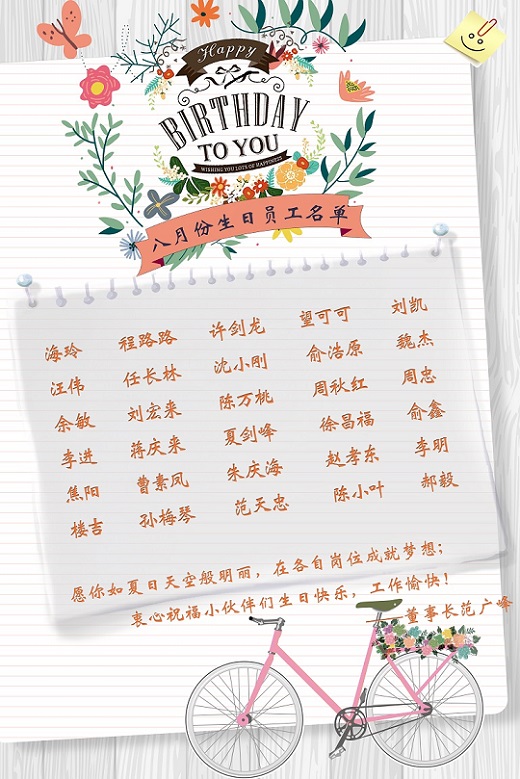 Happy
BIRTHDAY
TO YOU
WISHING YOU LOTS OF HAPPINESS
八月份生日员工名单
海玲 程路路 许剑龙 望可可 刘凯
汪伟 任长林 沈小刚 俞浩原 魏杰
余敏 刘宏来 陈万桃 周秋红 周忠
李进 蒋庆来 夏剑峰 徐昌福 俞鑫
焦阳 曹素凤 朱庆海 赵孝东 李明
楼吉 孙梅琴 范天忠 陈小叶 郝毅
愿你如夏日天空般明丽，在各自岗位成就梦想；
衷心祝福小伙伴们生日快乐，工作愉快！
——董事长范广峰